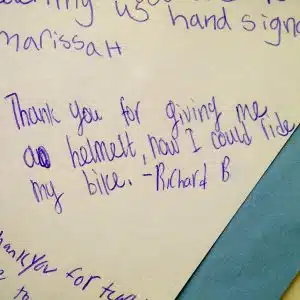 us hand sign
Marissa H
Thank you for giving me
a helmelt, now I could ride
my bike. -Richard B
Thank you for
to